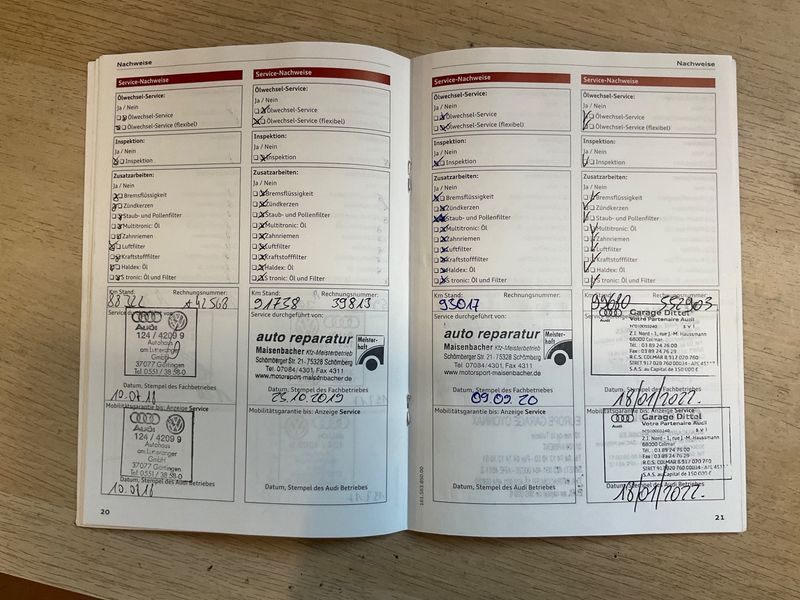 Nachweise
Service-Nachweise
Ölwechsel-Service:
Ja / Nein
Ölwechsel-Service
Ölwechsel-Service (flexibel)
Inspektion:
Ja / Nein
Inspektion
Zusatzarbeiten:
Ja / Nein
Bremsflüssigkeit
Zündkerzen
Staub- und Pollenfilter
Multitronic: Öl
Zahnriemen
Luftfilter
Kraftstofffilter
Haldex: Öl
S tronic: Öl und Filter
Km Stand: Rechnungsnummer:
88322
Audi
124 / 4209 9
Autohaus
GmbH
37077 Göttingen
Datum, Stempel des Fachbetriebes
10.07.18
Mobilitätsgarantie bis: Anzeige Service
Audi
124 / 4209 9
Autohaus
GmbH
37077 Göttingen
Datum, Stempel des Audi Betriebes
20
Service-Nachweise
Ölwechsel-Service:
Ja / Nein
Ölwechsel-Service
Ölwechsel-Service (flexibel)
Inspektion:
Ja / Nein
Inspektion
Zusatzarbeiten:
Ja / Nein
Bremsflüssigkeit
Zündkerzen
Staub- und Pollenfilter
Multitronic: Öl
Zahnriemen
Luftfilter
Kraftstofffilter
Haldex: Öl
S tronic: Öl und Filter
Km Stand: Rechnungsnummer:
91738 39813
Service durchgeführt von:
auto reparatur
Meisterhaft
Maisenbacher Kfz-Meisterbetrieb
Schömberger Str. 21 · 75328 Schömberg
Tel. 07084/4301, Fax 4311
www.motorsport-maisenbacher.de
Datum, Stempel des Fachbetriebes
25.10.2019
Mobilitätsgarantie bis: Anzeige Service
Datum, Stempel des Audi Betriebes
Nachweise
Service-Nachweise
Ölwechsel-Service:
Ja / Nein
Ölwechsel-Service
Ölwechsel-Service (flexibel)
Inspektion:
Ja / Nein
Inspektion
Zusatzarbeiten:
Ja / Nein
Bremsflüssigkeit
Zündkerzen
Staub- und Pollenfilter
Multitronic: Öl
Zahnriemen
Luftfilter
Kraftstofffilter
Haldex: Öl
S tronic: Öl und Filter
Km Stand: Rechnungsnummer:
93017
Service durchgeführt von:
auto reparatur
Meisterhaft
Maisenbacher Kfz-Meisterbetrieb
Schömberger Str. 21 · 75328 Schömberg
Tel. 07084/4301, Fax 4311
www.motorsport-maisenbacher.de
Datum, Stempel des Fachbetriebes
09.09.20
Mobilitätsgarantie bis: Anzeige Service
Datum, Stempel des Audi Betriebes
Service-Nachweise
Ölwechsel-Service:
Ja / Nein
Ölwechsel-Service
Ölwechsel-Service (flexibel)
Inspektion:
Ja / Nein
Inspektion
Zusatzarbeiten:
Ja / Nein
Bremsflüssigkeit
Zündkerzen
Staub- und Pollenfilter
Multitronic: Öl
Zahnriemen
Luftfilter
Kraftstofffilter
Haldex: Öl
S tronic: Öl und Filter
Garage Dittel
Votre Partenaire Audi
Z.I. Nord - 1, rue J.-M. Haussmann
68000 Colmar
Tél. : 03 89 24 76 00
Datum, Stempel des Fachbetriebes
18/01/2022.
Mobilitätsgarantie bis: Anzeige Service
Garage Dittel
Votre Partenaire Audi
Z.I. Nord - 1, rue J.-M. Haussmann
68000 Colmar
Datum, Stempel des Audi Betriebes
18/01/2022.
21